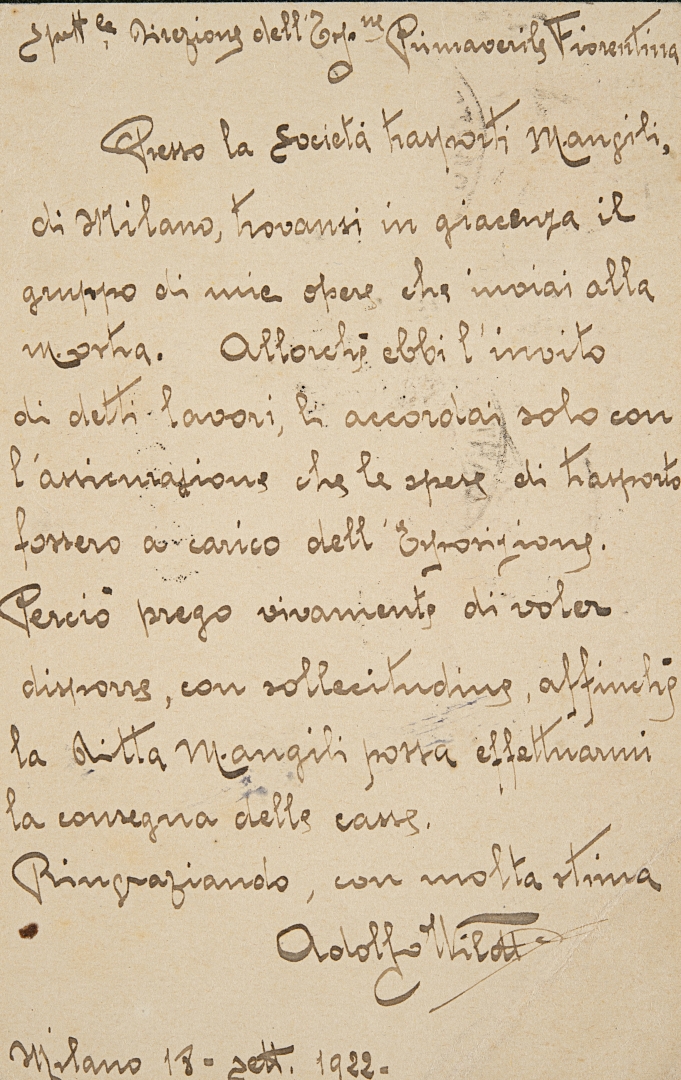 Spett.le Direzione dell'Esp.ne Primaverile Fiorentina
Presso la Società trasporti Mangili,
di Milano, trovansi in giacenza il
gruppo di mie opere che inviai alla
Mostra. Allorchè ebbi l'invito
di detti lavori, li accordai solo con
l'assicurazione che le spese di trasporto
fossero a carico dell'Esposizione.
Perciò prego vivamente di voler
disporre, con sollecitudine, affinchè
la Ditta Mangili possa effettuarmi
la consegna delle casse.
Ringraziando, con molta stima
Adolfo Wildt
Milano 18 - sett. 1922 -